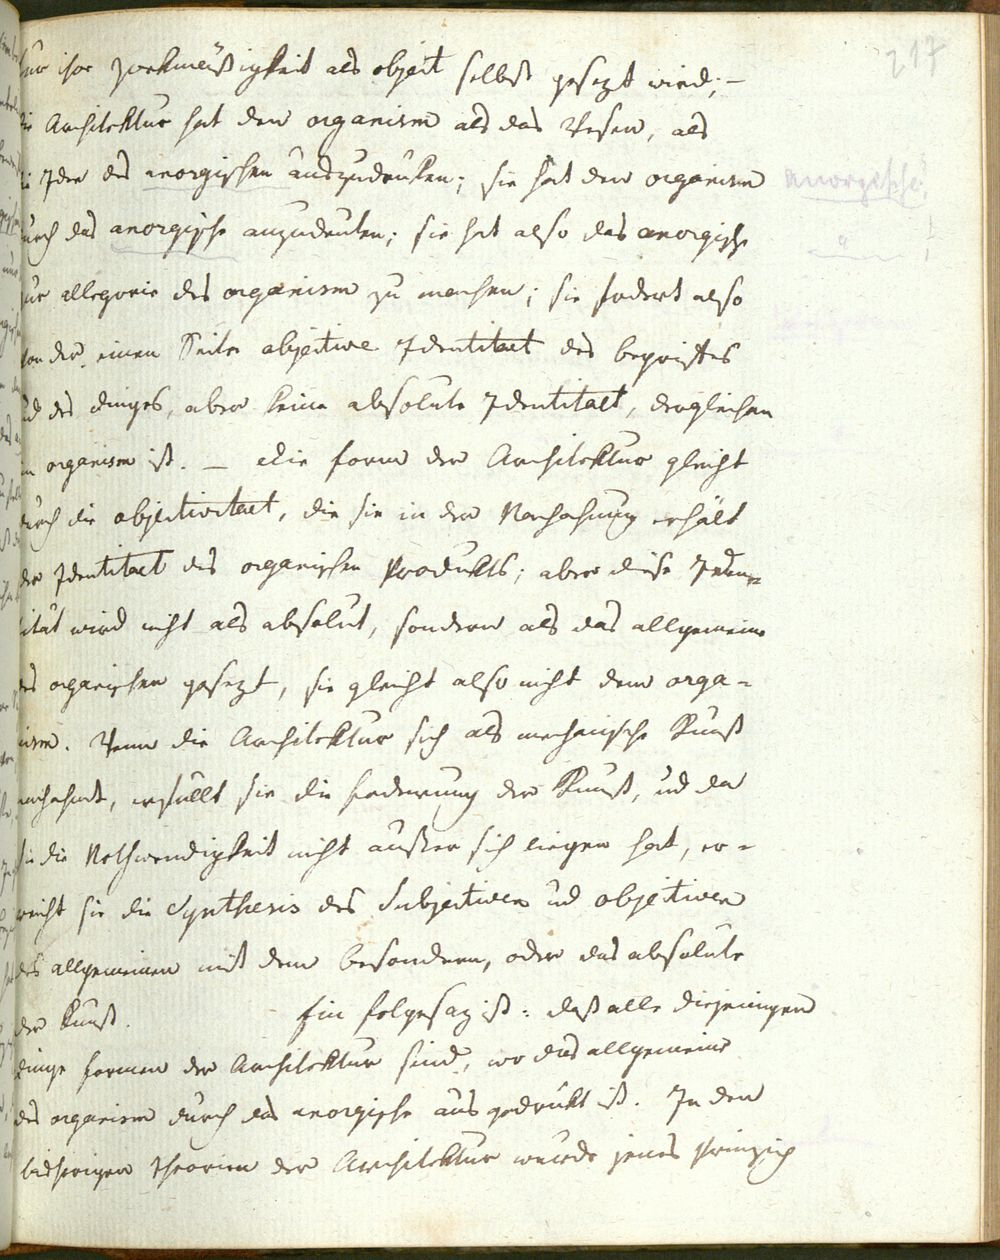 217
nur ihre Zwekmäßigkeit als objeit selbst gesezt wird; –
die Architektur hat den organism als das Wesen, als
die Idee des anorgischen auszudruken; sie hat den organism
anorgische?
durch das anorgische anzudeuten; sie hat also das anorgische
zur allegorie des organism zu machen; sie fodert also
von der einen Seite objeitive Identitaet des begriffes
und des dinges, aber keine absolute Identitaet, dergleichen
im organism ist. – die form der Architektur gleicht
durch die objeitivitaet, die sie in der Nachahmung erhält
der Identitaet des organischen Produkts; aber diese Iden=
tität wird nicht als absolut, sondern als das allgemeine
des organischen gesezt, sie gleicht also nicht dem orga=
nism. Wenn die Architektur sich als mechanische Kunst
nachahmt, erfüllt sie die foderung der Kunst, ud da
sie die Nothwendigkeit nicht außer sich liegen hat, er=
reicht sie die Synthesis des Subjeitiven ud objeitiven
des allgemeinen mit dem besondern, oder das absolute
der Kunst. Ein folgesaz ist: daß alle diejenigen
dinge formen der Architektur sind, wo das allgemeine
des organism durch das anorgische ausgedrükt ist. In den
bisherigen theorien der Architektur wurde jenes Prinzip